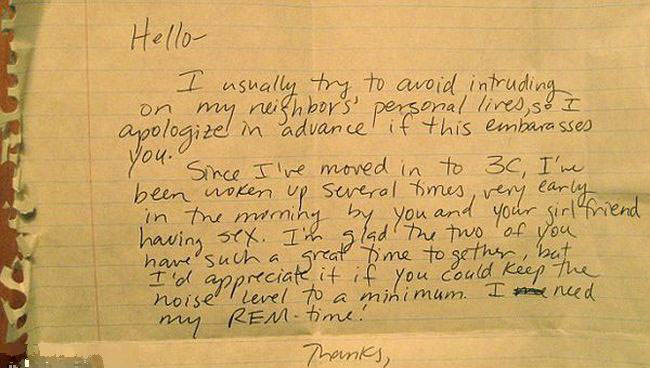 Hello-
I usually try to avoid intruding
on my neighbors' personal lives, so I
apologize in advance if this embarasses
you.
Since I've moved in to 3C, I've
been woken up several times, very early
in the morning by you and your girlfriend
having sex. I'm glad the two of you
have such a great time together, but
I'd appreciate it if you could keep the
noise level to a minimum. I need
my REM-time!
Thanks,